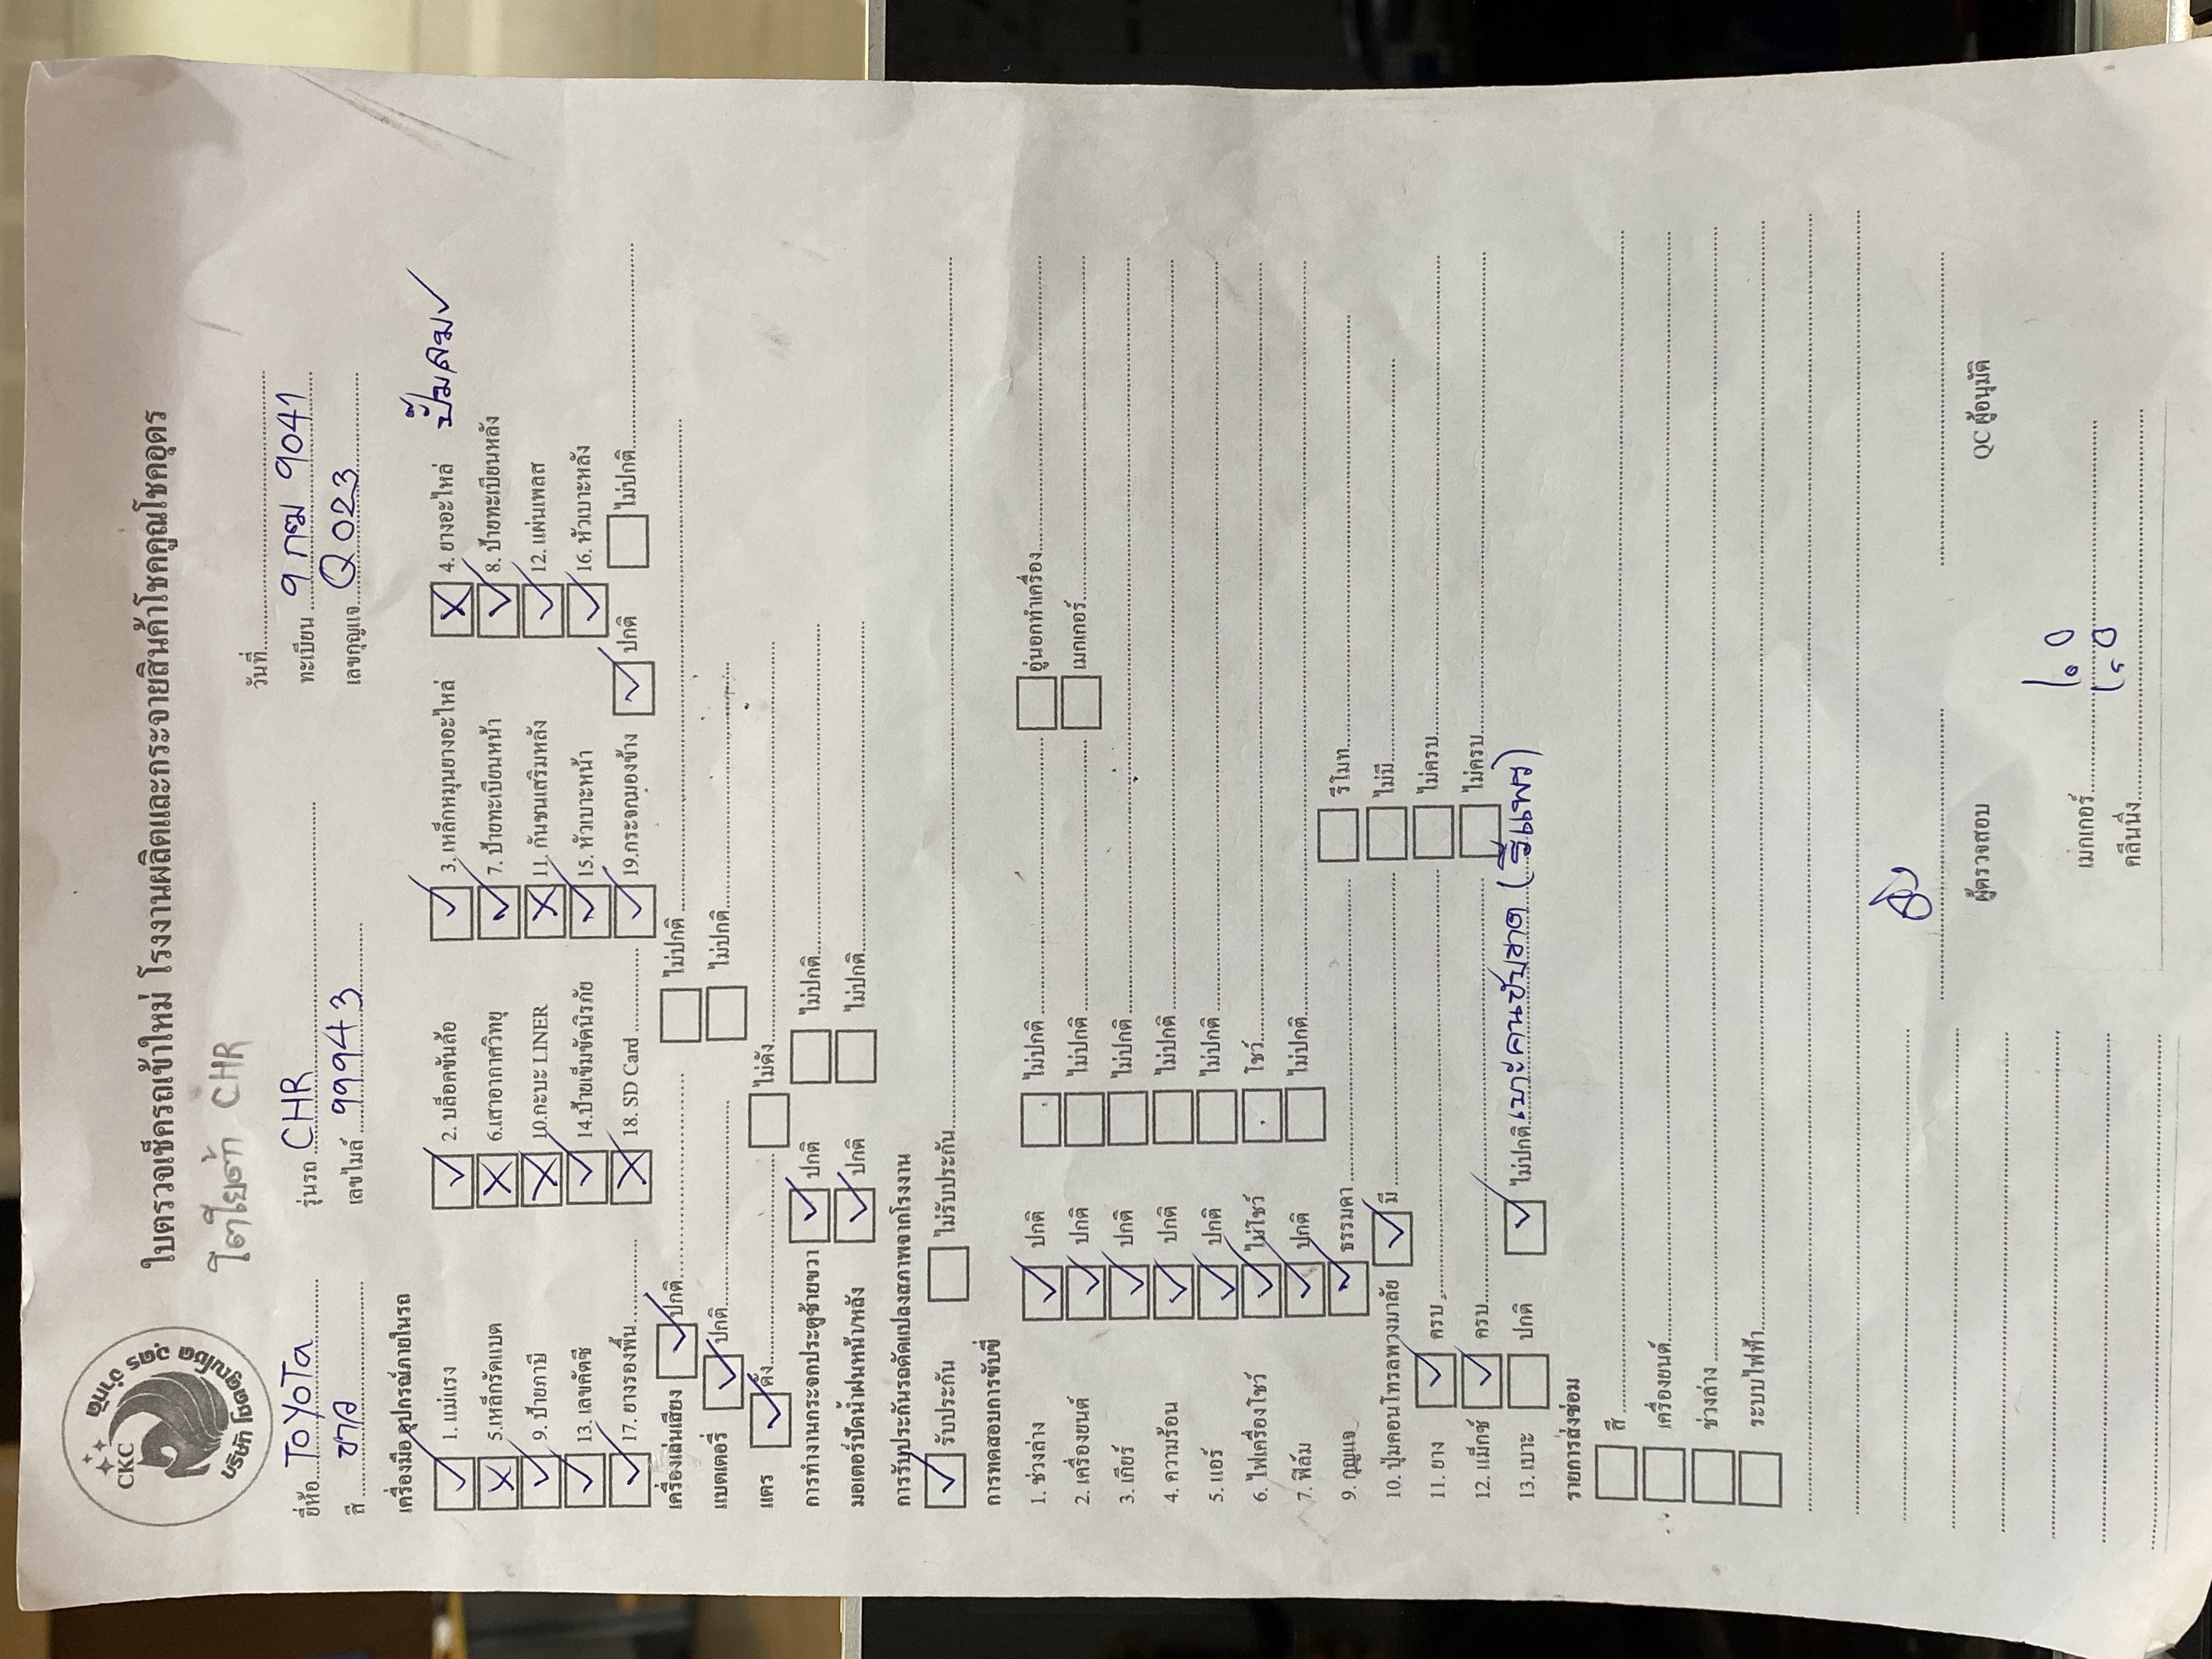 บริษัท โชคคูณโชค อุดร จำกัด
CKC
ใบตรวจเช็ครถเข้าใหม่ โรงงานผลิตและกระจายสินค้าโชคคูณโชคอุดร
โตโยต้า CHR
วันที่
ยี่ห้อ ToYoTa รุ่นรถ CHR ทะเบียน 9 กฆ 9041
สี ขาว เลขไมล์ 99943 เลขกุญแจ Q 023
เครื่องมือ อุปกรณ์ภายในรถ
ปั๊มลม ✓
☑ 1. แม่แรง ☑ 2. บล็อคขันล้อ ☑ 3. เหล็กหมุนยางอะไหล่ ☒ 4. ยางอะไหล่
☒ 5.เหล็กรัดแบต ☒ 6.เสาอากาศวิทยุ ☑ 7. ป้ายทะเบียนหน้า ☑ 8. ป้ายทะเบียนหลัง
☑ 9. ป้ายภาษี ☒ 10.กะบะ LINER ☒ 11. กันชนเสริมหลัง ☑ 12. แผ่นเพลส
☑ 13. เลขคัคซี ☑ 14.ป้ายเข็มขัดนิรภัย ☑ 15. หัวเบาะหน้า ☑ 16. หัวเบาะหลัง
☑ 17. ยางรองพื้น ☒ 18. SD Card ☑ 19.กระจกมองข้าง ☑ ปกติ ☐ ไม่ปกติ
เครื่องเล่นเสียง ☑ ปกติ ☐ ไม่ปกติ
แบตเตอรี่ ☑ ปกติ ☐ ไม่ปกติ
แตร ☑ ดัง ☐ ไม่ดัง
การทำงานกระจกประตูซ้ายขวา ☑ ปกติ ☐ ไม่ปกติ
มอเตอร์ปัดน้ำฝนหน้า/หลัง ☑ ปกติ ☐ ไม่ปกติ
การรับประกันรถดัดแปลงสภาพจากโรงงาน
☑ รับประกัน ☐ ไม่รับประกัน
การทดสอบการขับขี่
1. ช่วงล่าง ☑ ปกติ ☐ ไม่ปกติ ☐ อู่นอกทำเครื่อง
2. เครื่องยนต์ ☑ ปกติ ☐ ไม่ปกติ ☐ เมกเกอร์
3. เกียร์ ☑ ปกติ ☐ ไม่ปกติ
4. ความร้อน ☑ ปกติ ☐ ไม่ปกติ
5. แอร์ ☑ ปกติ ☐ ไม่ปกติ
6. ไฟเครื่องโชว์ ☑ ไม่โชว์ ☐ โชว์
7. ฟิล์ม ☑ ปกติ ☐ ไม่ปกติ
9. กุญแจ ☑ ธรรมดา ☐ รีโมท
10. ปุ่มคอนโทรลพวงมาลัย ☑ มี ☐ ไม่มี
11. ยาง ☑ ครบ ☐ ไม่ครบ
12. แม็กซ์ ☑ ครบ ☐ ไม่ครบ
13. เบาะ ☐ ปกติ ☑ ไม่ปกติ เบาะคนขับขาด (รีแพร)
รายการส่งซ่อม
☐ สี
☐ เครื่องยนต์
☐ ช่วงล่าง
☐ ระบบไฟฟ้า
ผู้ตรวจสอบ QC ผู้อนุมัติ
เมกเกอร์
คลีนนิ่ง